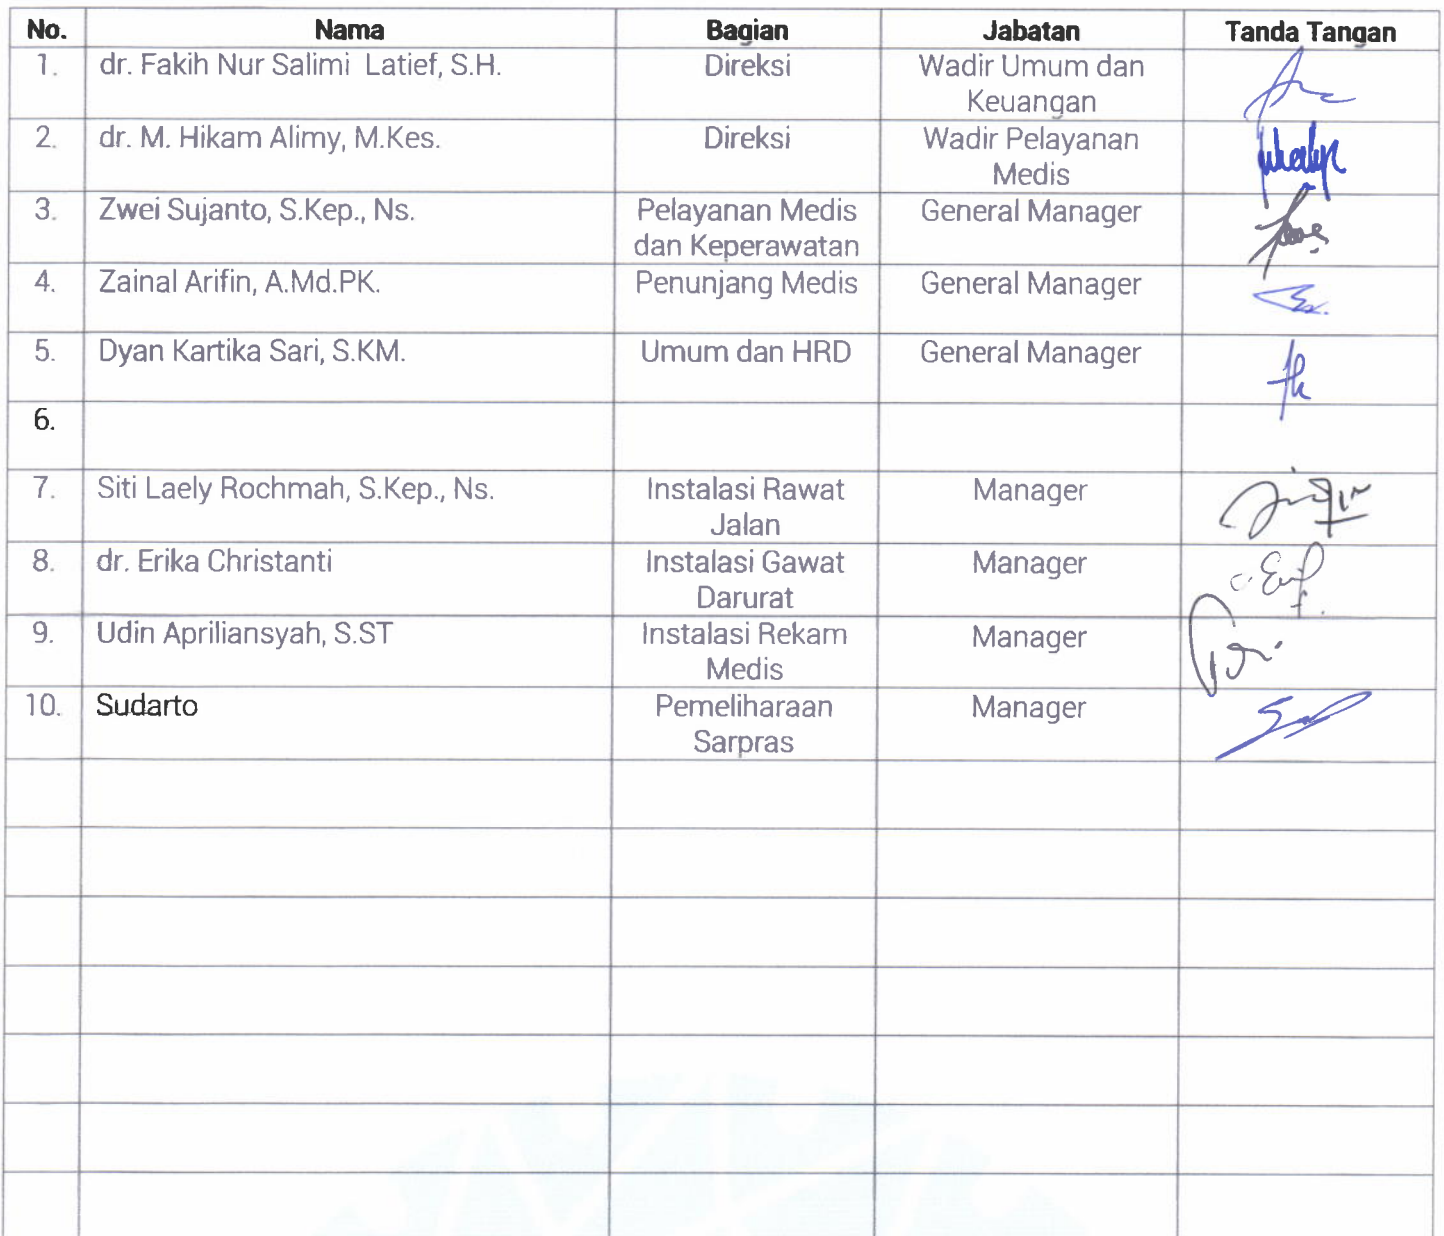 No. Nama Bagian Jabatan Tanda Tangan
1. dr. Fakih Nur Salimi Latief, S.H. Direksi Wadir Umum dan
Keuangan
2. dr. M. Hikam Alimy, M.Kes. Direksi Wadir Pelayanan
Medis
3. Zwei Sujanto, S.Kep., Ns. Pelayanan Medis General Manager
dan Keperawatan
4. Zainal Arifin, A.Md.PK. Penunjang Medis General Manager
5. Dyan Kartika Sari, S.KM. Umum dan HRD General Manager
6.
7. Siti Laely Rochmah, S.Kep., Ns. Instalasi Rawat Manager
Jalan
8. dr. Erika Christanti Instalasi Gawat Manager
Darurat
9. Udin Apriliansyah, S.ST Instalasi Rekam Manager
Medis
10. Sudarto Pemeliharaan Manager
Sarpras